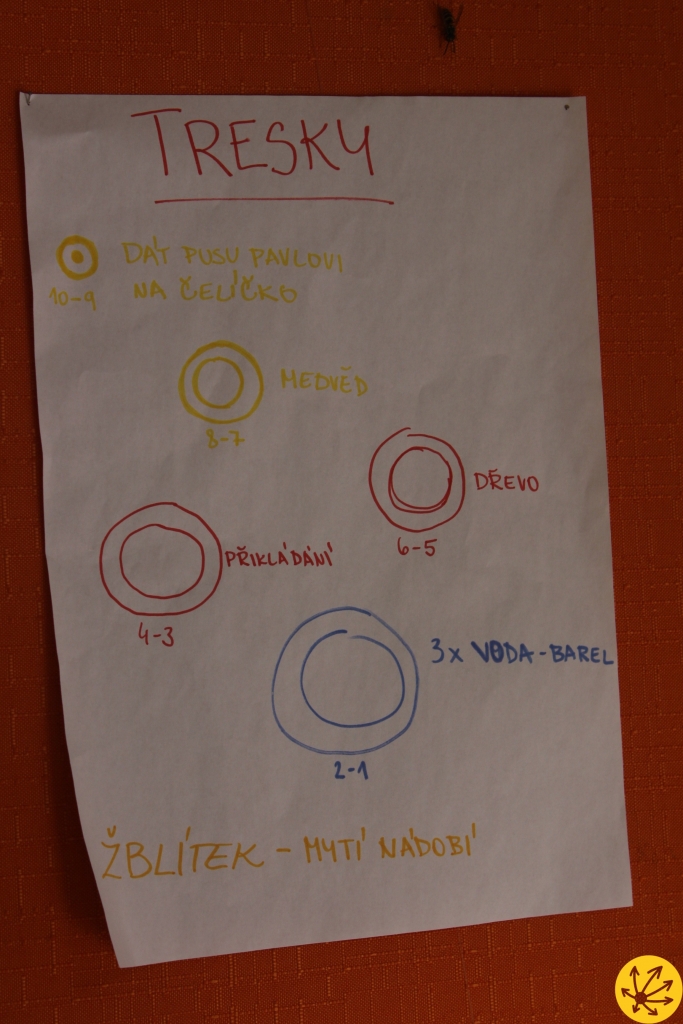 TRESKY
DAT PUSU PAVLOVI
NA ČELÍČKO
10-9
MEDVĚD
8-7
DŘEVO
6-5
PŘIKLÁDÁNÍ
4-3
3x VODA-BAREL
2-1
ŽBLÍTEK - MYTÍ NÁDOBÍ